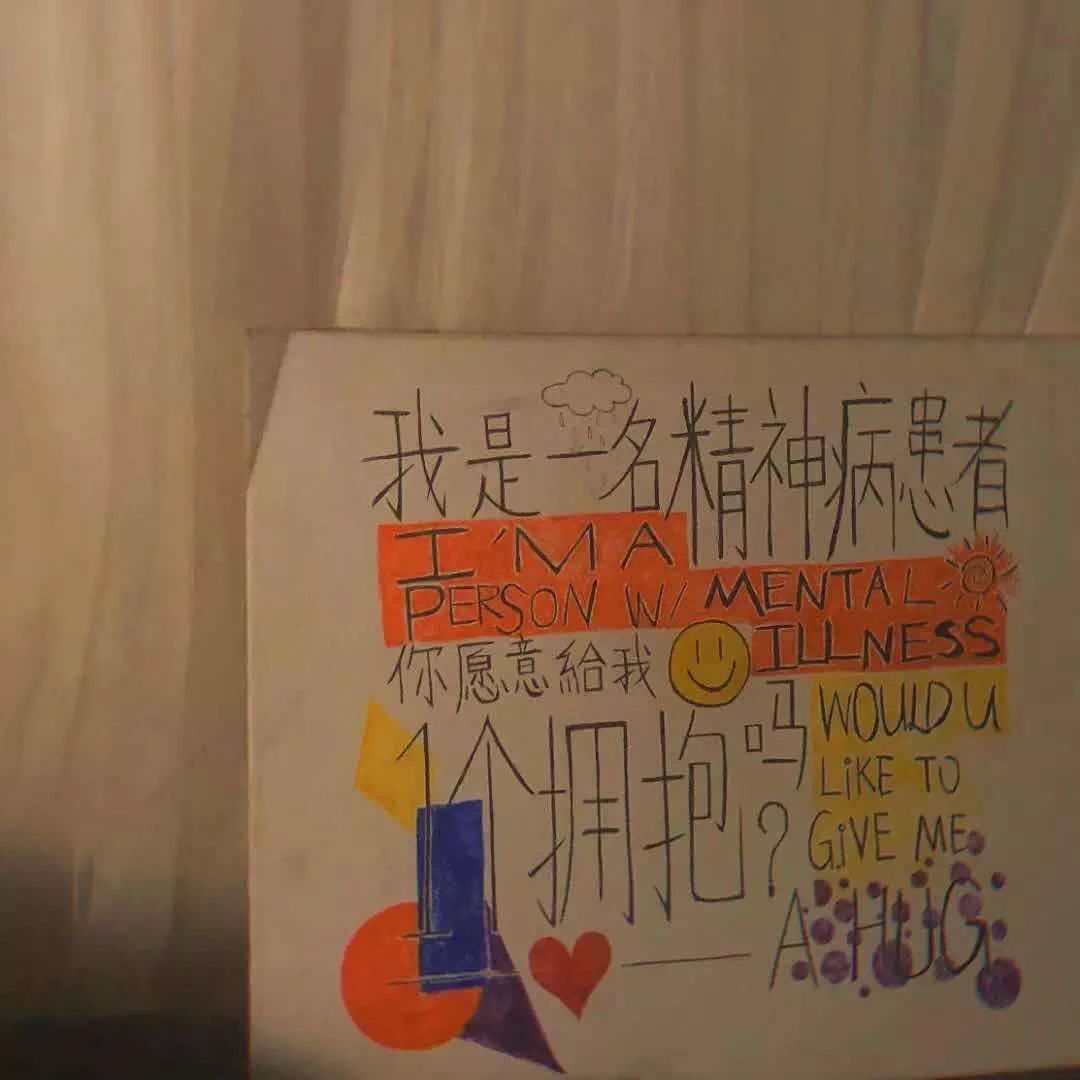 我是一名精神病患者
I'M A
PERSON W/ MENTAL
ILLNESS
你愿意給我
1个拥抱吗?
WOULD U
LiKE TO
GiVE ME
A HUG